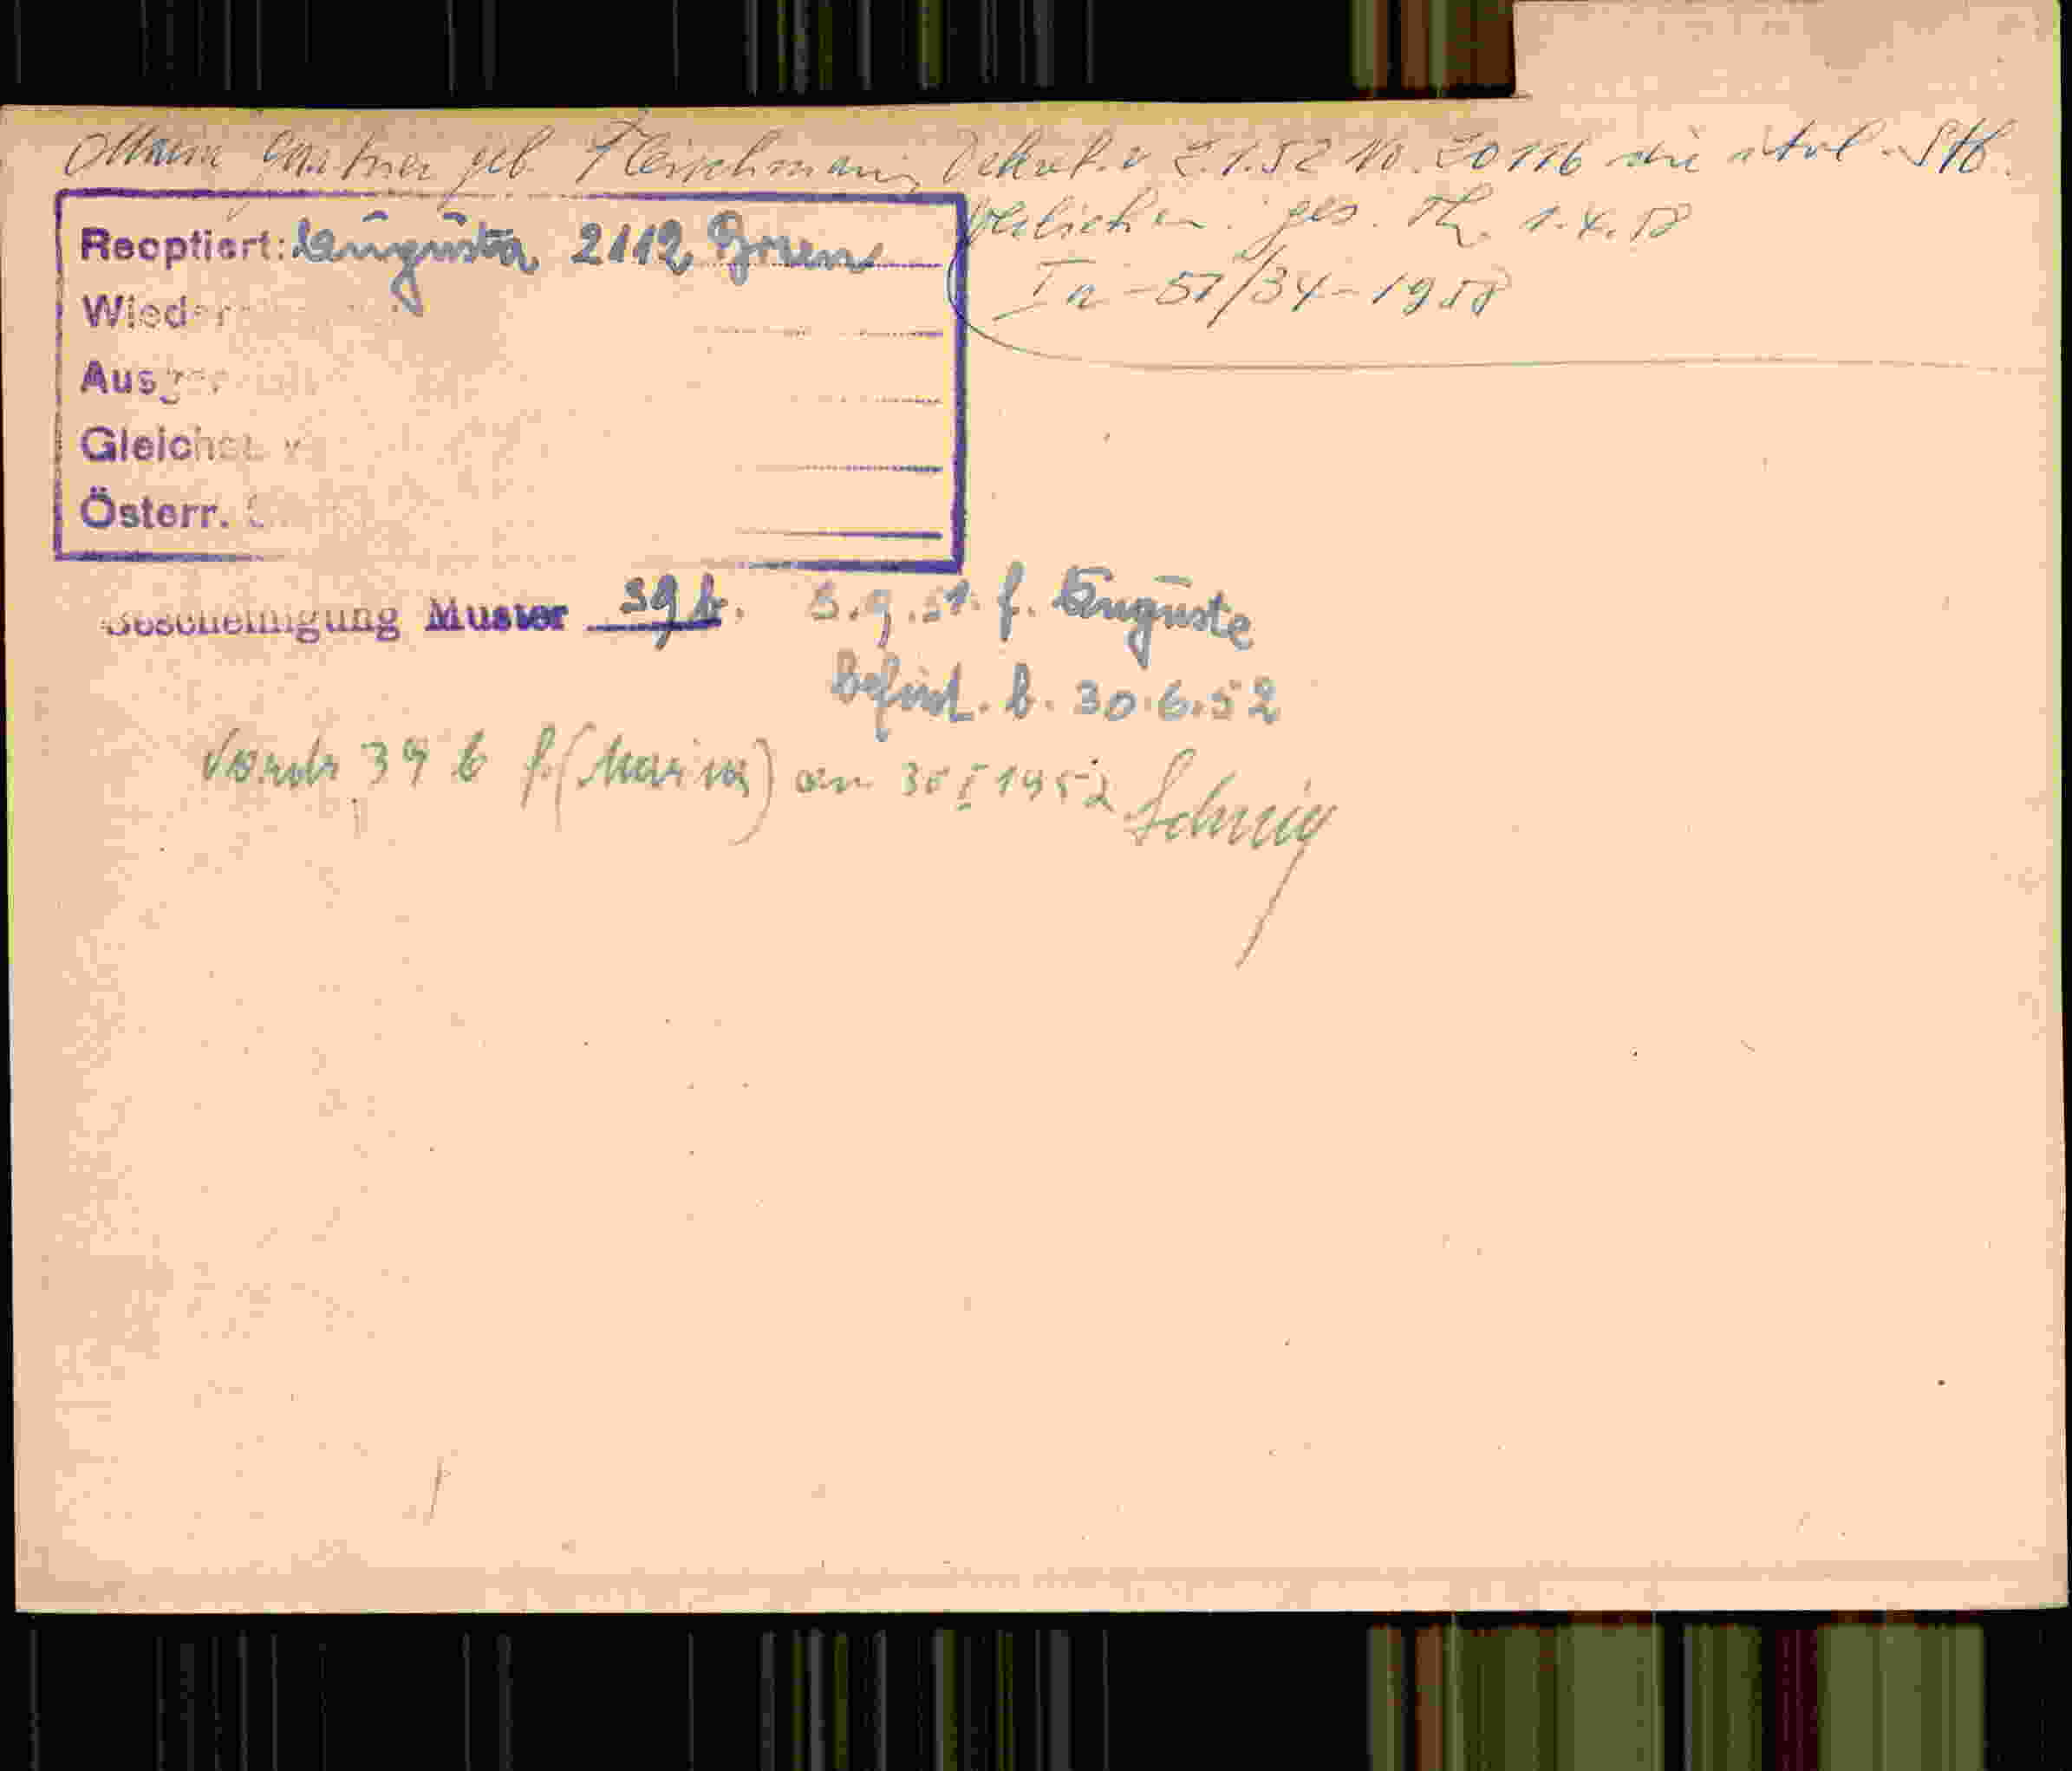 Maria Gartner geb. Fleischmann, Dekret v 2.1.52 No. 20116 die ital. Stb.
Verliehen. ges. Th. 1.X.58
Ia-57/34-1958
Reoptiert: Augusta 2112 Gruen
Wieder
Aus
Gleichst. v
Österr.
Bescheinigung Muster 39 b. 3.9.51. f. Auguste
Befrist. b. 30.6.52
39 b f. (Maria) am 30 I 1952